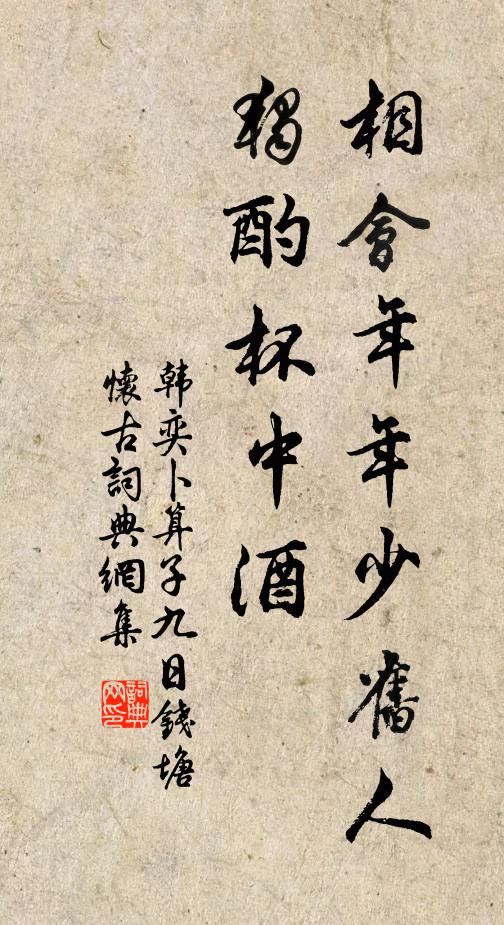 相會年年少舊人
獨酌杯中酒
韩奕卜算子九日錢塘
懷古詞典網集
詞典网印